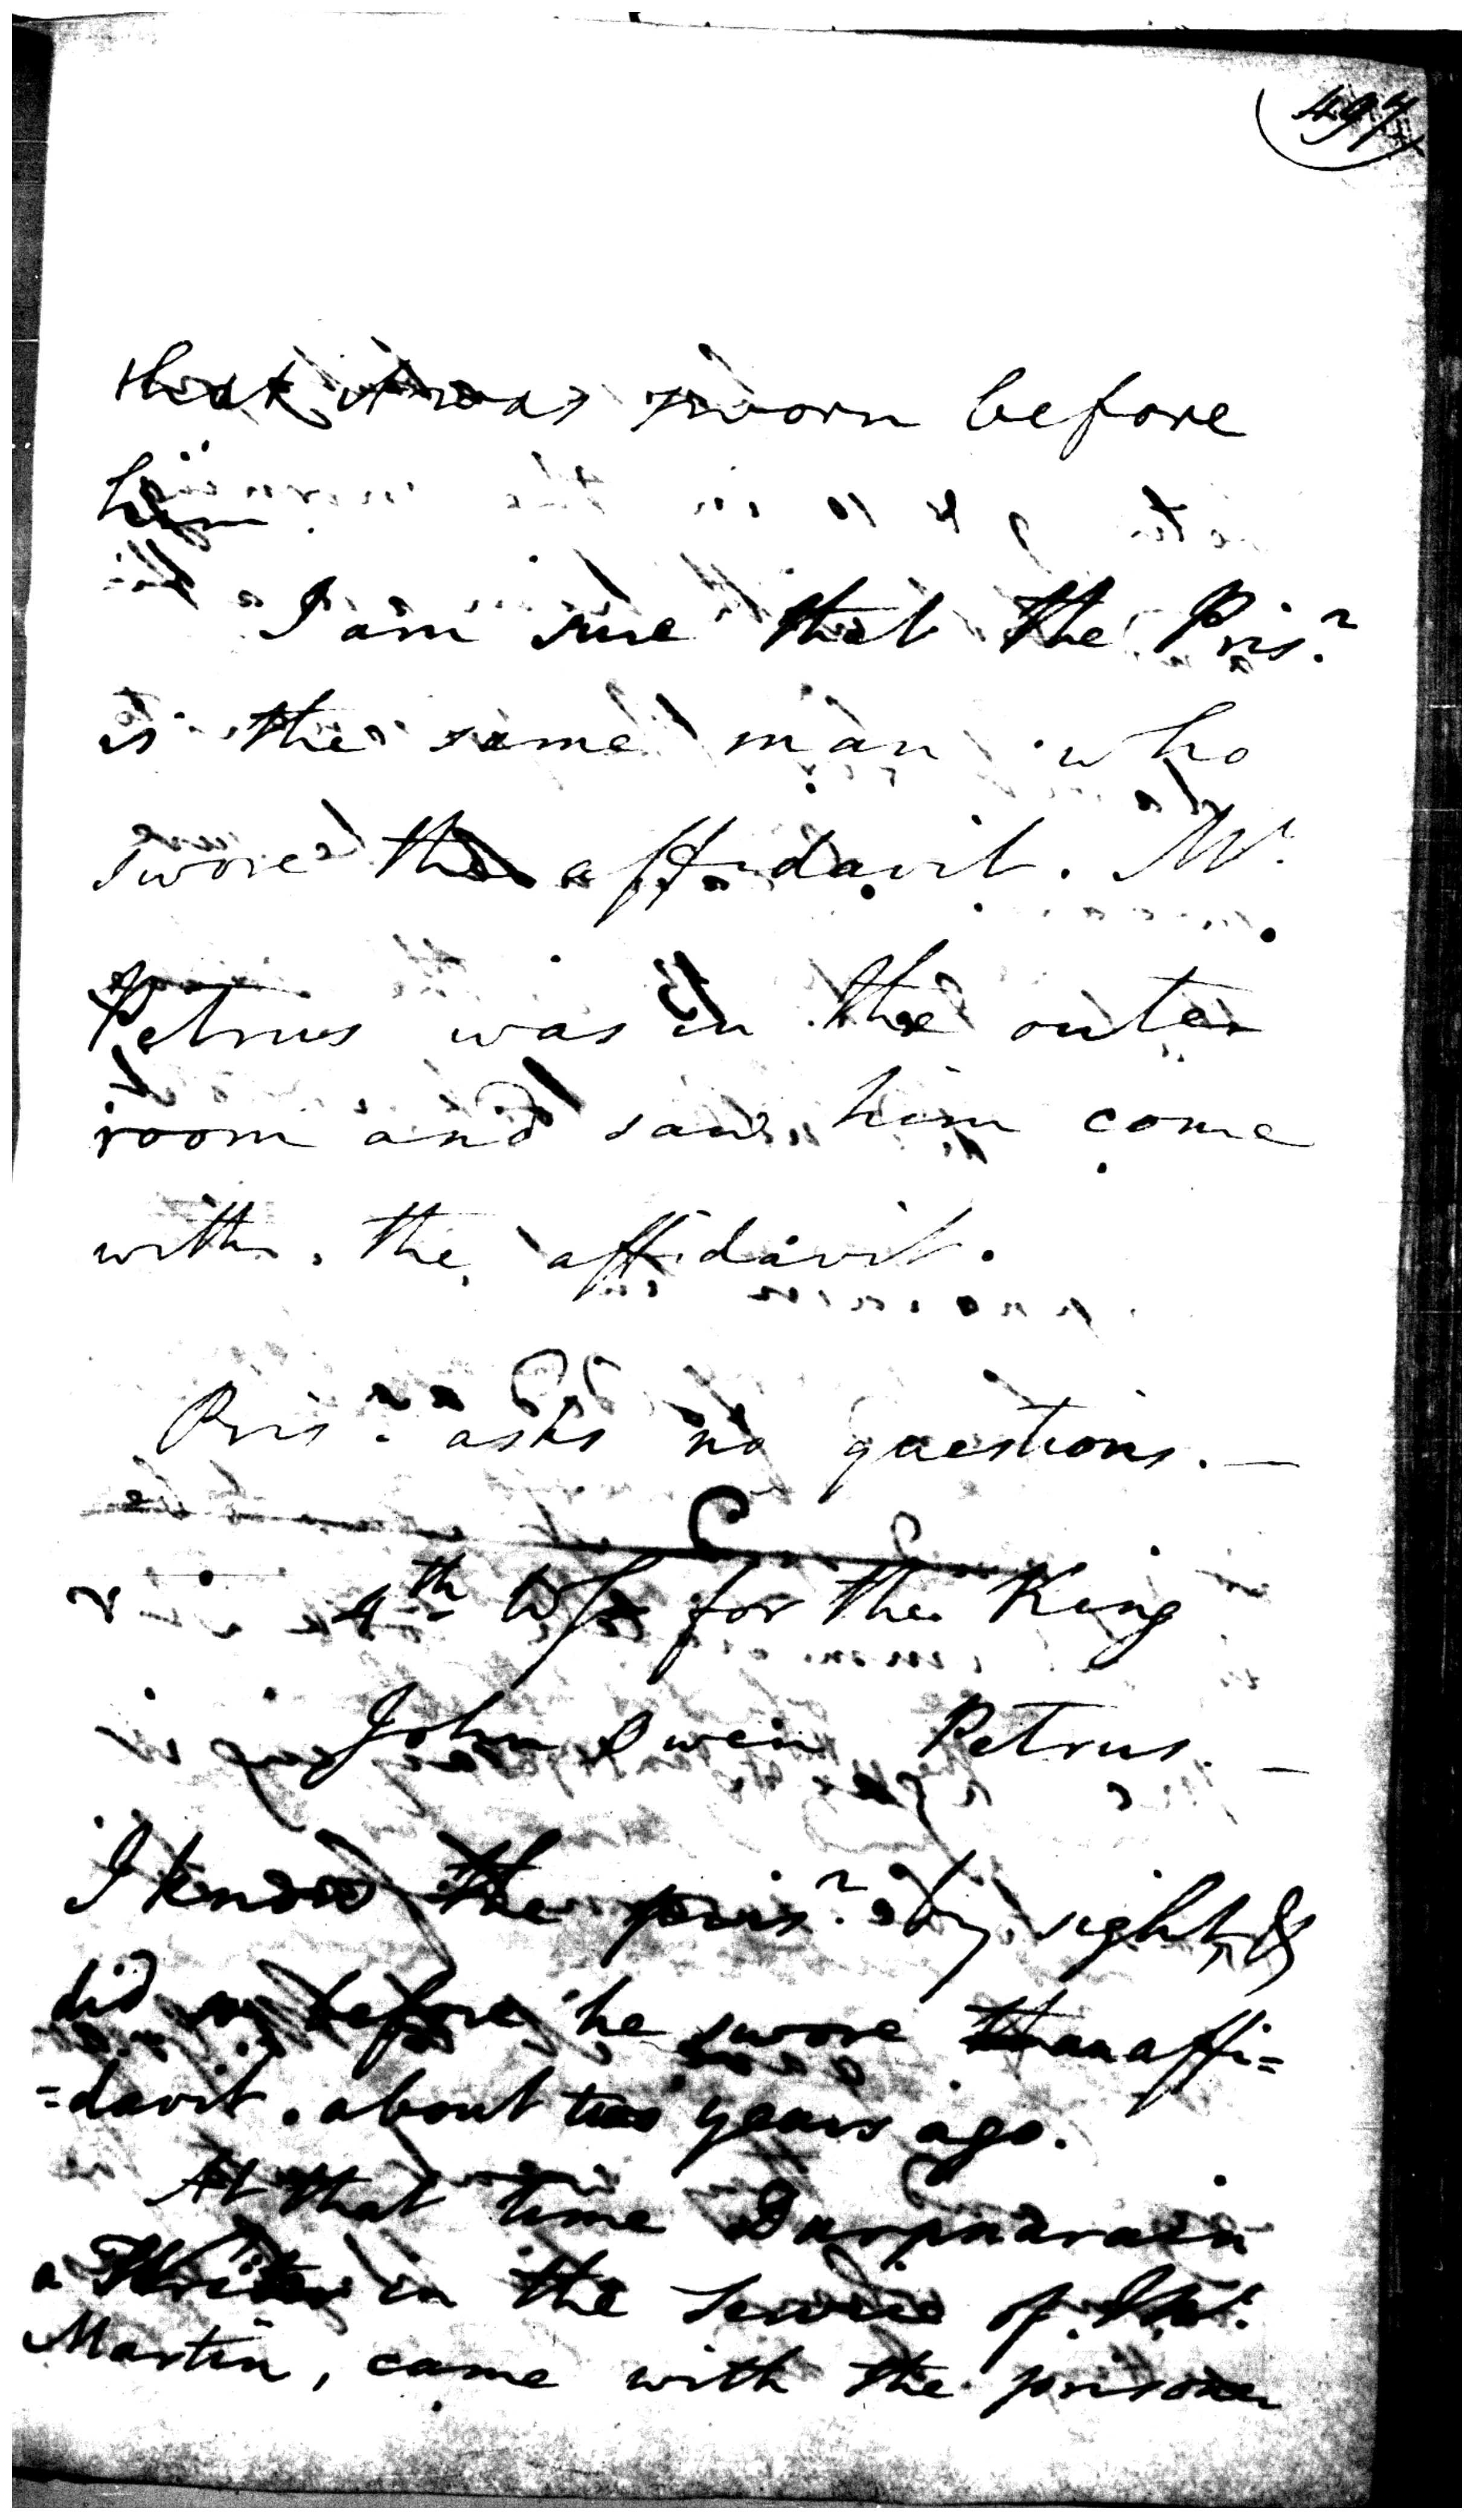 497
that it was sworn before
him.
I am sure that the Prisr.
is the same man who
swore the affidavit. Mr.
Petrus was in the outer
room and saw him come
with the affidavit.
Prisr. asks no questions. —
4th Wss for the King
John Petrus —
I know the prisr. by sight, &
did so before he swore an affi=
=davit. about two years ago.
At that time Durpnarain
a Writer in the Service of Mr.
Martin, came with the prisoner